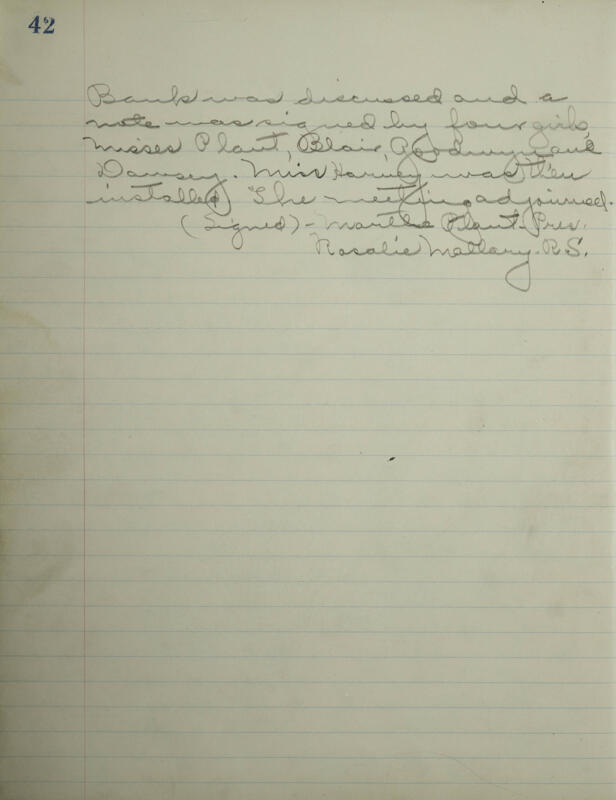 42
Bank was discussed and a
note was signed by four girls,
Misses Plant, Blair, Goodwyn and
Damsey. Miss Harvey was then
installed. The meeting adjourned.
(Signed) - Martha Plant - Pres.
Rosalie Mallary. R.S.